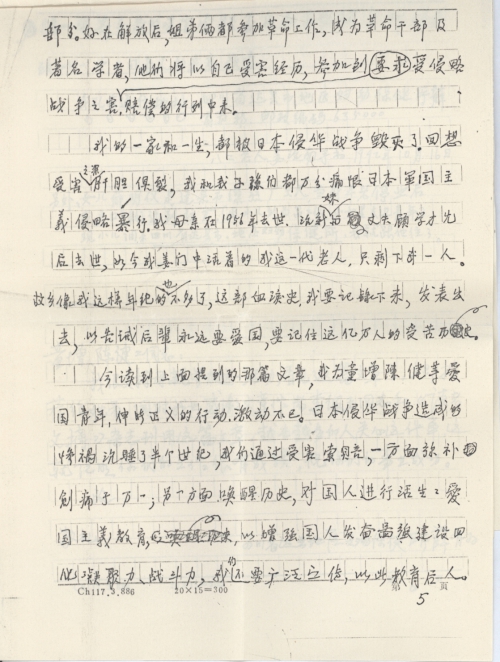 部分。好在解放后,姐弟俩都参加革命工作,成为革命干部及
著名学者,他们将以自己受害经历,参加到要求受侵略
战争之害,赔偿的行列中来。
我的一家和一生,都被日本侵华战争毁灭了,回想
受害之事肝胆俱裂,我和我子孙们都万分痛恨日本军国主
義侵略暴行。我母亲在1956年去世,丈夫顾学才先
后去世,如今我姜门中活着的我这一代老人,只剩下我一人。
故乡像我这样年纪的也不多了,这部血泪史,我要记录下来,发表出
去,以告诫后辈永远要爱国,要记住这亿万人的受苦历史。
今读到上面提到的那篇文章,我为童增陳健等爱
国青年,伸的正义的行动,激动不已。日本侵华战争造成的
惨祸沉睡了半个世纪,我们通过受害索賠,一方面弥补
创痛于万一;另一方面唤醒历史,对国人进行活生生爱
国主義教育,以增强国人发奋图强建设四
化凝聚力、战斗力,我们要广泛宣传,以此教育后人。
Ch117.3.886 20×15=300 第 页
5